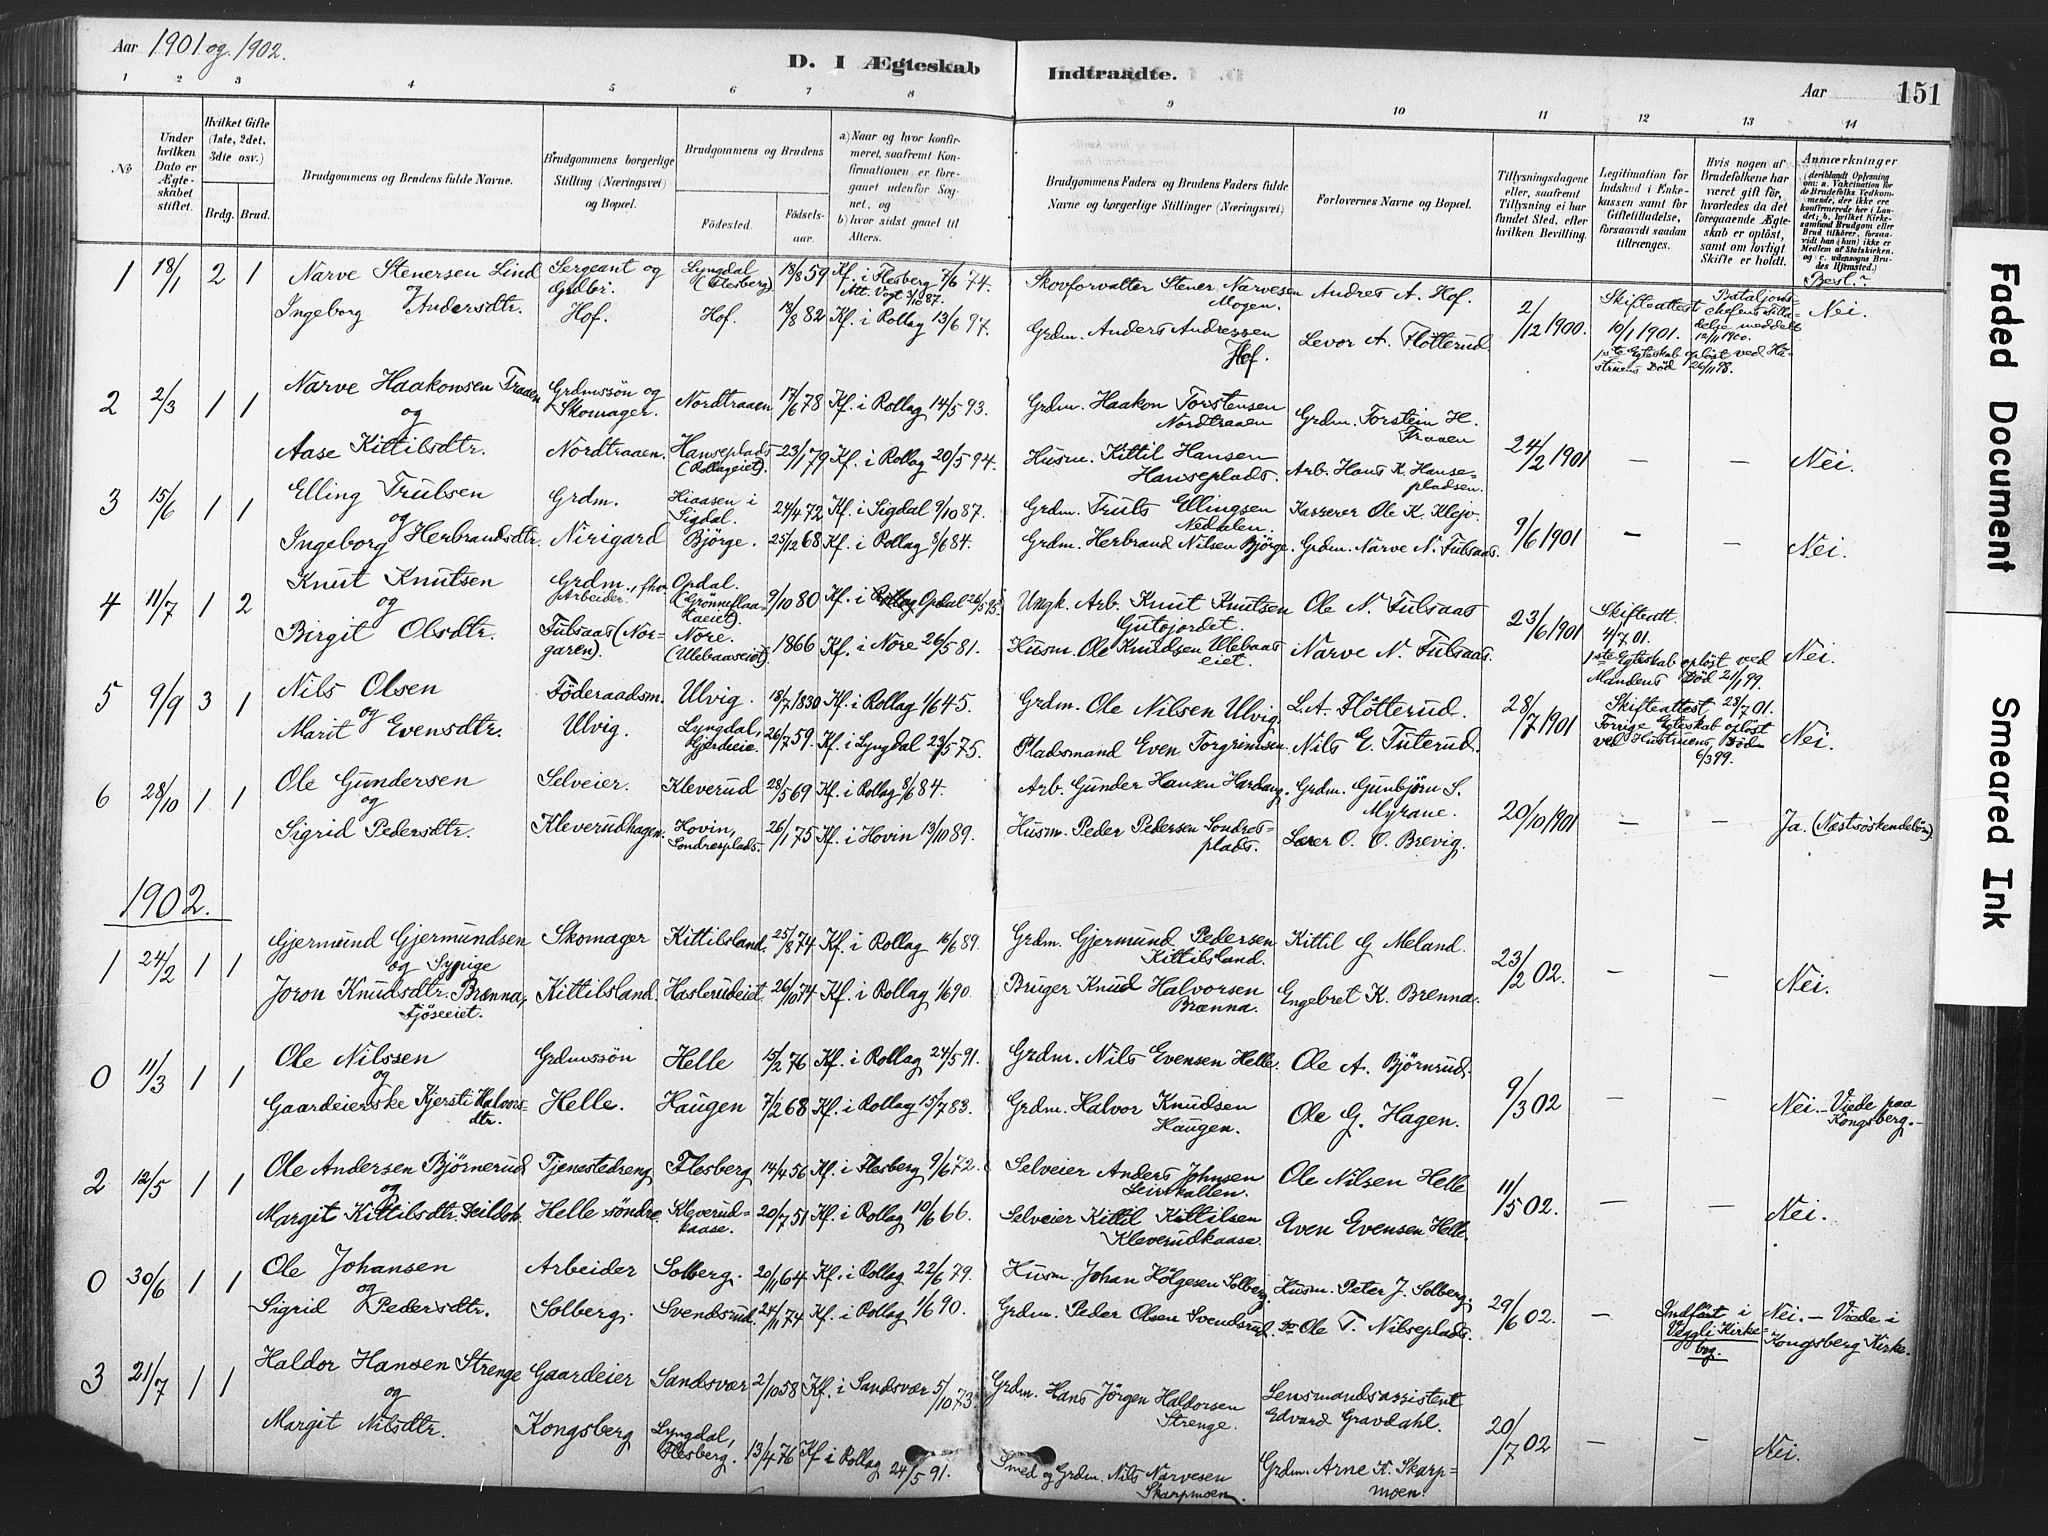 Aar 1901 og 1902.
D. I Ægteskab Indtraadte.
Aar 151
1 2 3 4 5 6 7 8 9 10 11 12 13 14
No.
Under hvilken Dato er Ægteskabet stiftet.
Hvilket Gifte (1ste, 2det, 3die osv.)
Brdg. Brud.
Brudgommens og Brudens fulde Navne.
Brudgommens borgerlige Stilling (Næringsvei) og Bopæl.
Brudgommens og Brudens
Fødested. Fødselsaar.
a) Naar og hvor konfirmeret, saafremt Konfirmationen er foregaaet udenfor Sognet, og
b) hvor sidst gaaet til Alters.
Brudgommens Faders og Brudens Faders fulde Navne og borgerlige Stillinger (Næringsvei)
Forlovernes Navne og Bopæl.
Tillysningsdagene eller, saafremt Tillysning ei har fundet Sted, efter hvilken Bevilling.
Legitimation for Indskud i Enkekassen samt for Giftetilladelse, forsaavidt saadan tiltrænges.
Hvis nogen af Brudefolkene har været gift før, hvorledes da det foregaaende Ægteskab er opløst, samt om lovligt Skifte er holdt.
Anmærkninger (deriblandt Oplysning om: a. Vakcination for de Brudefolks Vedkommende, der ikke ere konfirmerede her i Landet; b. hvilket Kirkesamfund Brudgom eller Brud tilhører, forsaavidt han (hun) ikke er Medlem af Statskirken, og c. udensogns Brudes Hjemsted.)
Besl.?
1 18/1 2 1 Narve Stenersen Lind Sergeant og Lyngdal (Flesberg) 18/8 59 Kf. i Flesberg 7/6 74. Skovforvalter Stener Narvesen Mogen. Andres A. Hof. 2/12 1900. Skifteattest 10/1 1901. Bataljonschefens Tilladelse meddelt 12/11 1900. Nei.
og Att. Vogt 3/10 87.
Ingeborg Andersdtr. Hof. Hof. 13/8 82 Kf. i Rollag 13/6 97. Grdm. Anders Andressen Hof. Levor A. Flötterud. 1ste Egteskab opløst ved Hustruens Död 26/11 98.
2 2/3 1 1 Narve Haakonsen Traaen Grdmssön og Skomager. Nordtraaen 17/6 78 Kf. i Rollag 14/5 93. Grdm. Haakon Torstensen Nordtraaen Grdm. Torstein H. Traaen
og
Aase Kittilsdtr. Nordtraaen. Hanseplads (Rollageiet). 23/1 79 Kf. i Rollag 20/5 94. Husm. Kittil Hansen Hanseplads. Arb. Hans K. Hansepladsen. 24/2 1901 — — Nei.
3 15/6 1 1 Elling Trulsen Grdm. Hiaasen i Sigdal. 24/4 72 Kf. i Sigdal 9/10 87. Grdm. Truls Ellingsen Nedalen. Kasserer Ole K. Klejv.
og
Ingeborg Herbrandsdtr. Nirigard Björge. 25/12 68 Kf. i Rollag 8/6 84. Grdm. Herbrand Nilsen Björge. Grdm. Narve N. Fulsaas. 9/6 1901 — — Nei.
4 11/7 1 2 Knut Knutsen Grdm., fhv. Arbeider. Opdal. (Grönneflaataeiet). 9/10 80 Kf. i Opdal 26/5 95. Ungk. Arb. Knut Knutsen Gutujordet. Ole N. Fulsaas 23/6 1901 Skifteatt. 4/7 01.
og
Birgit Olsdtr. Fulsaas (Norgaren). Nore. (Ullebaaseiet). 1866 Kf. i Nore 26/5 81. Husm. Ole Knudsen Ullebaaseiet. Narve N. Fulsaas. 1ste Egteskab opløst ved Mandens Död 21/1 99. Nei.
5 9/9 3 1 Nils Olsen Föderaadsm. Ulvig. 18/7 1830 Kf. i Rollag 1/6 45. Grdm. Ole Nilsen Ulvig. L. A. Flötterud. 28/7 1901 Skifteattest 23/7 01.
og
Marit Evensdtr. Ulvig. Lyngdal, Gjerdeeie. 26/7 59. Kf. i Lyngdal 23/5 75. Pladsmand Even Torgrimsen. Nils E. Tuterud. Forrige Egteskab opløst ved Hustruens Död 6/3 99. Nei.
6 28/10 1 1 Ole Gundersen Selveier. Kleverud 28/5 69 Kf. i Rollag 8/6 84. Arb. Gunder Hansen Hardang. Grdm. Gunbjörn S. Myrane.
og
Sigrid Pedersdtr. Kleverudhagen. Hovin, Sondresplads. 26/1 75 Kf. i Hovin 13/10 89. Husm. Peder Pedersen Sondresplads. Lærer O. O. Brevig. 20/10 1901 — — Ja. (Næstsøskendebörn).
1902.
1 24/2 1 1 Gjermund Gjermundsen Skomager Kittilsland. 25/8 74 Kf. i Rollag 16/6 89. Grdm. Gjermund Pedersen Kittilsland. Kittil G Meland. 23/2 02. — — Nei.
og
Joron Knudsdtr. Brenna, Fjöseeiet. Kittilsland. Haslerudeiet. 26/10 74 Kf. i Rollag 1/6 90. Bruger Knud Halvorsen Brænna. Engebret K. Brenna.
0 11/3 1 1 Ole Nilssen Grdmssön Helle 15/2 76 Kf. i Rollag 24/5 91. Grdm. Nils Evensen Helle. Ole A. Björnrud.
og
Gaardeierske Kjersti Halvorsdtr. Helle. Haugen 7/2 68 Kf. i Rollag 15/7 83. Grdm. Halvor Knudsen Haugen. Ole G. Hagen. 9/3 02 — — Nei. — Viede paa Kongsberg. —
2 12/5 1 1 Ole Andersen Björnerud Tjenestedreng Flesberg 14/4 56 Kf. i Flesberg 9/6 72. Selveier Anders Johnsen Leirkallen. Ole Nilsen Helle 11/5 02.
og
Margit Kittilsdtr. Helle söndre Kleverudkaase. 20/7 51 Kf. i Rollag 10/6 66. Selveier Kittil Kittilsen Kleverudkaase. Even Evensen Helle. — — Nei.
0 30/6 1 1 Ole Johansen Arbeider Solberg. 20/11 64 Kf. i Rollag 22/6 79. Husm. Johan Holgesen Solberg. Husm. Peter J. Solberg.
og
Sigrid Pedersdtr. Solberg. Svendsrud. 24/11 74 Kf. i Rollag 1/6 90. Grdm. Peder Olsen Svendsrud. do Ole T. Nilseplads. 29/6 02. — Indført i Veggli Kirkebog. Nei. — Viede i Kongsberg Kirke.
3 21/7 1 1 Haldor Hansen Strenge Gaardeier Sandsvær 2/10 58 Kf. i Sandsvær 5/10 73 Grdm. Hans Jörgen Haldorsen Strenge. Lensmandsassistent Edvard Gravdahl.
og
Margit Nilsdtr. Kongsberg Lyngdal, Flesberg. 13/4 76 Kf i Rollag 24/5 91. Smed og Grdm. Nils Narvesen Skarpmoen. Grdm. Arne K. Skarpmoen. 20/7 02 — — Nei.
Faded Document
Smeared Ink